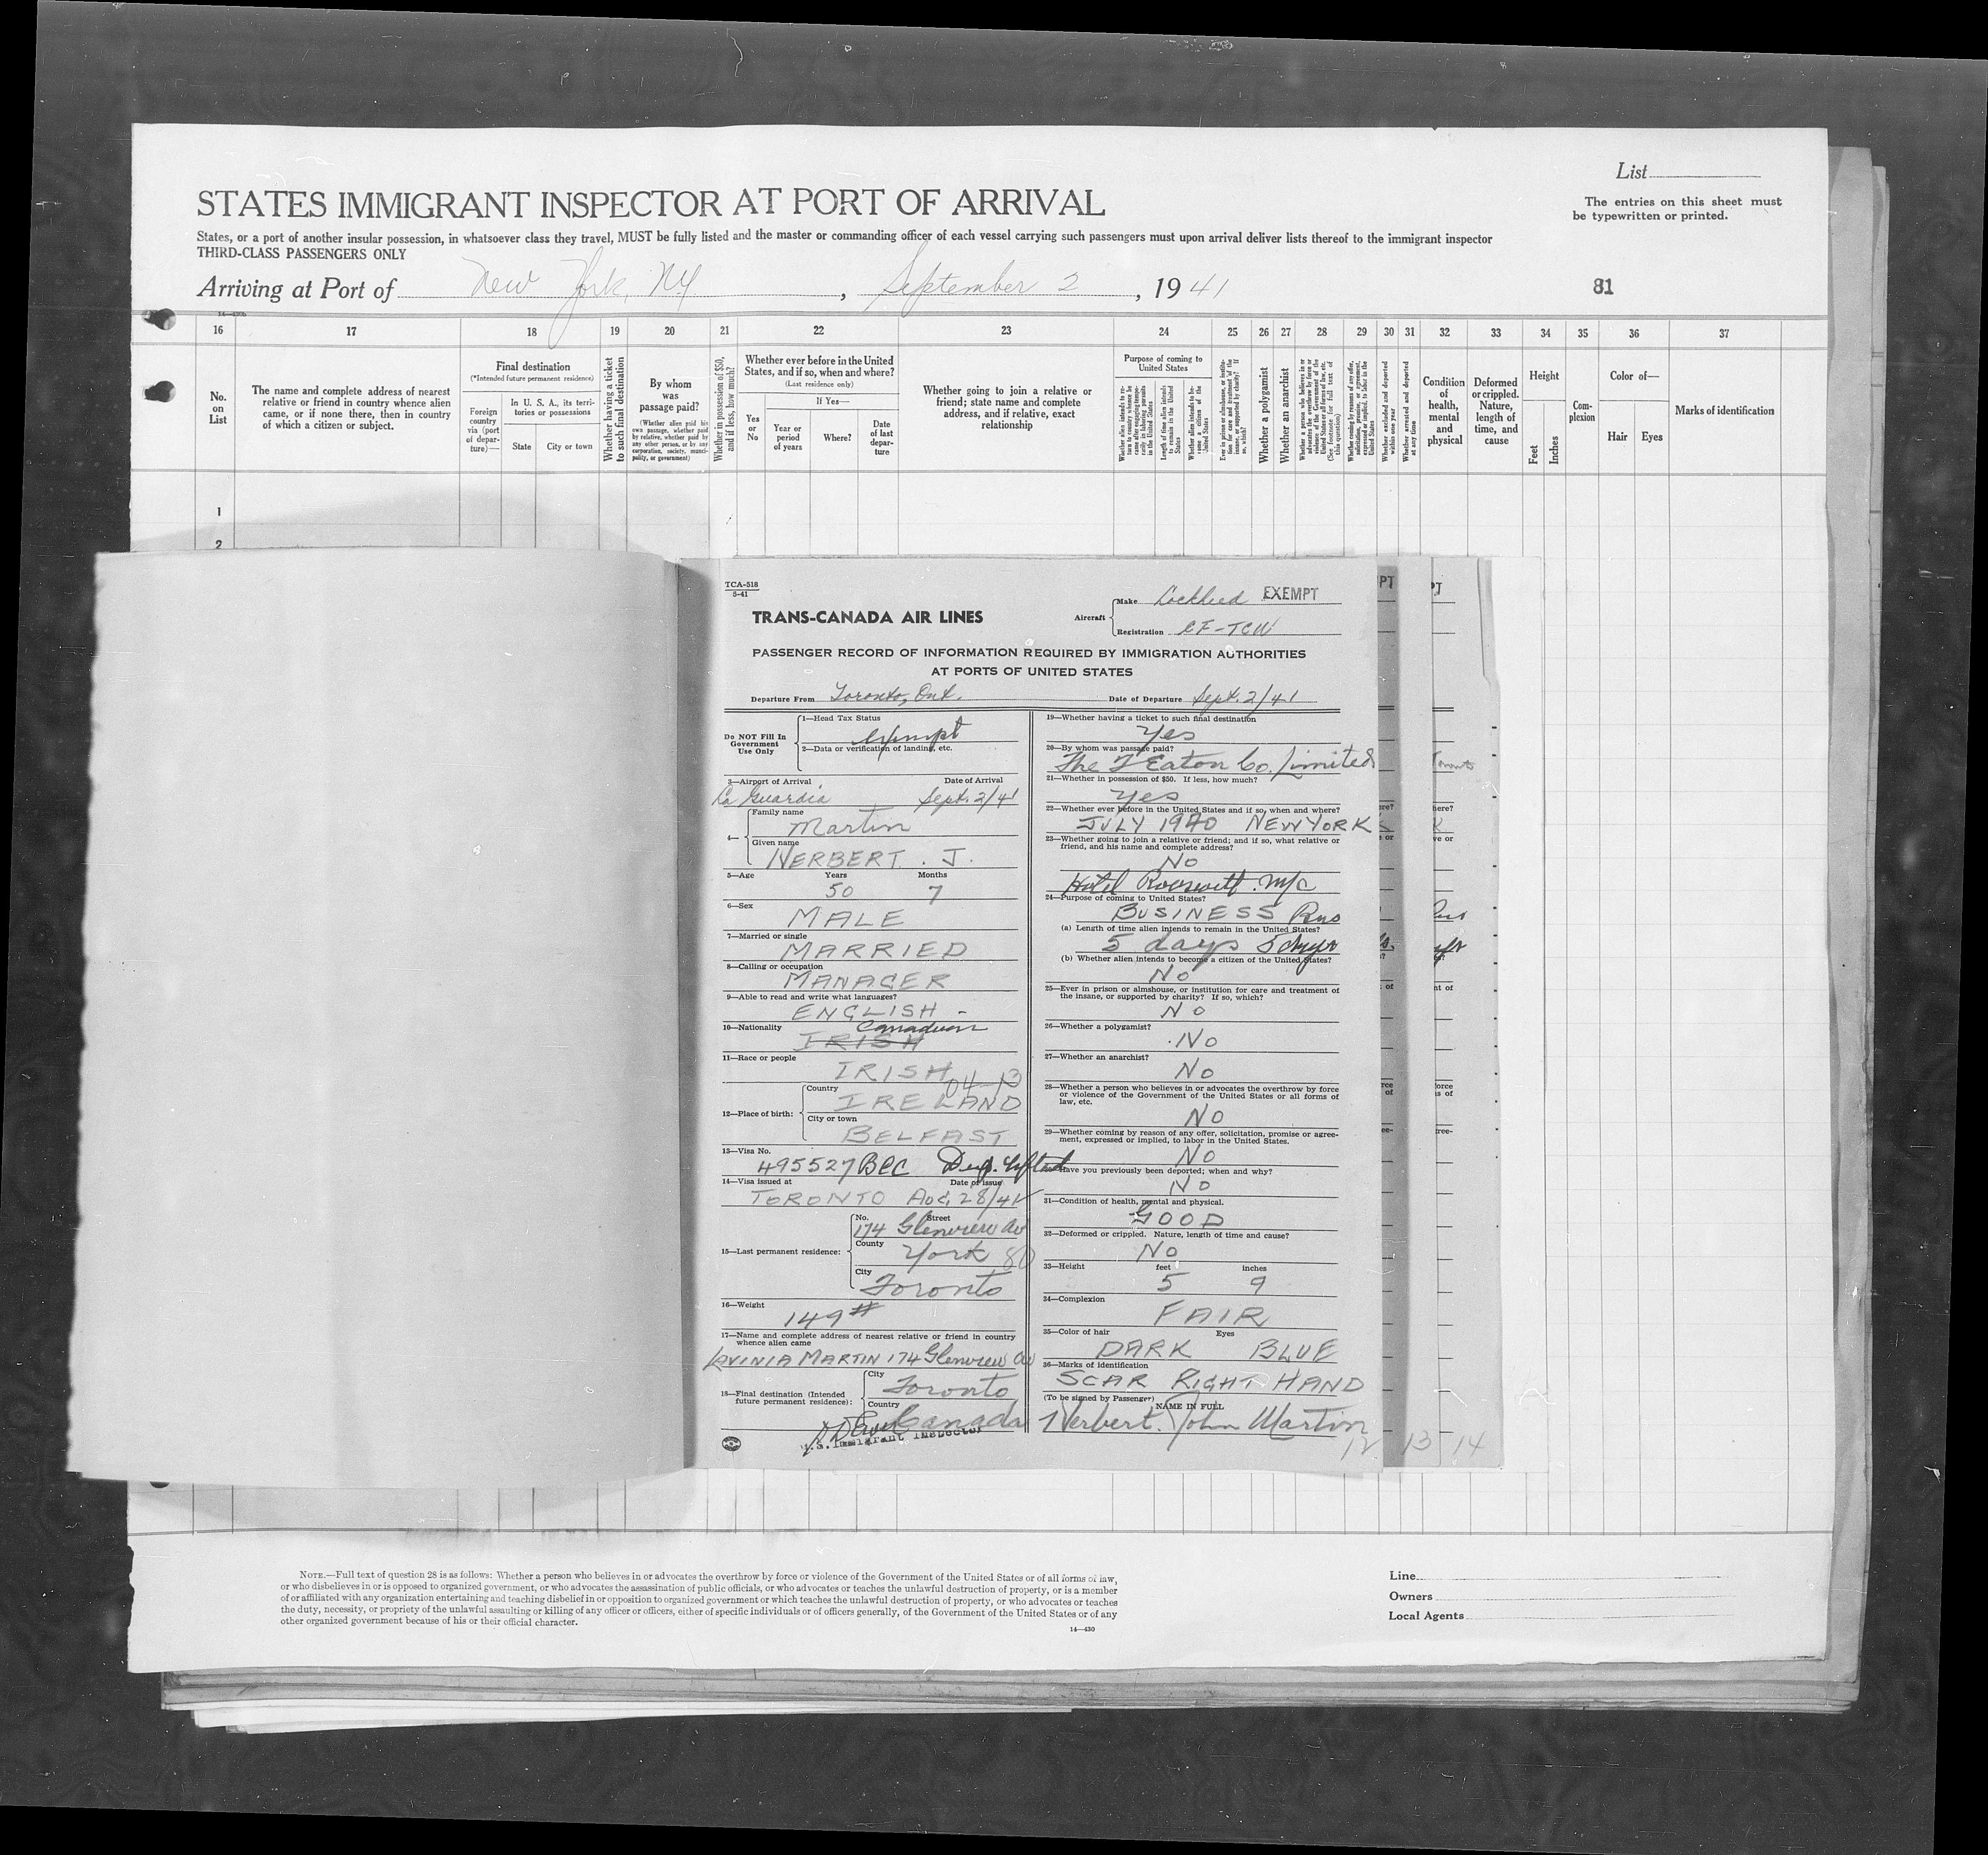 List
STATES IMMIGRANT INSPECTOR AT PORT OF ARRIVAL
The entries on this sheet must
be typewritten or printed.
States, or a port of another insular possession, in whatsoever class they travel, MUST be fully listed and the master or commanding officer of each vessel carrying such passengers must upon arrival deliver lists thereof to the immigrant inspector
THIRD-CLASS PASSENGERS ONLY
Arriving at Port of New York, NY, September 2, 1941
81
16 17 18 19 20 21 22 23 24 25 26 27 28 29 30 31 32 33 34 35 36 37
No. on List
The name and complete address of nearest
relative or friend in country whence alien
came, or if none there, then in country
of which a citizen or subject.
Final destination
(*Intended future permanent residence)
Foreign
country
via (port
of depar-
ture)—
In U. S. A., its terri-
tories or possessions
State
City or town
Whether having a ticket
to such final destination
By whom
was
passage paid?
(Whether alien paid his
own passage, whether paid
by relative, whether paid by
any other person, or by any
corporation, society, munici-
pality, or government)
Whether in possession of $50,
and if less, how much?
Whether ever before in the United
States, and if so, when and where?
(Last residence only)
Yes
or
No
If Yes—
Year or
period
of years
Where?
Date
of last
depar-
ture
Whether going to join a relative or
friend; state name and complete
address, and if relative, exact
relationship
Purpose of coming to
United States
Whether alien intends to re-
turn to country whence he
came after engaging tempo-
rarily in laboring pursuits
in the United States
Length of time alien intends
to remain in the United
States
Whether alien intends to be-
come a citizen of the
United States
Whether a polygamist
Whether an anarchist
Whether excluded and deported
within one year
Whether arrested and deported
at any time
Condition
of
health,
mental
and
physical
Deformed
or crippled.
Nature,
length of
time, and
cause
Height
Feet
Inches
Com-
plexion
Color of—
Hair
Eyes
Marks of identification
1
2
TCA-518
5-41
TRANS-CANADA AIR LINES
Aircraft
Make Lockheed EXEMPT
Registration CF-TCW
PASSENGER RECORD OF INFORMATION REQUIRED BY IMMIGRATION AUTHORITIES
AT PORTS OF UNITED STATES
Departure From Toronto, Ont.
Date of Departure Sept. 2/41
Do NOT Fill In
Government
Use Only
1—Head Tax Status
exempt
2—Data or verification of landing, etc.
3—Airport of Arrival Date of Arrival
La Guardia Sept. 2/41
4—
Family name
Martin
Given name
HERBERT. J.
5—Age Years Months
50 7
6—Sex
MALE
7—Married or single
MARRIED
8—Calling or occupation
MANAGER
9—Able to read and write what languages?
ENGLISH -
10—Nationality
Canadian
IRISH
11—Race or people
IRISH 04-13
12—Place of birth:
Country
IRELAND
City or town
BELFAST
13—Visa No.
495527 BCC Dup. Lifted
14—Visa issued at Date of issue
TORONTO AUG. 28/41
15—Last permanent residence:
No. Street
174 Glenview Av
County
York 80
City
Toronto
16—Weight
149#
17—Name and complete address of nearest relative or friend in country
whence alien came
LAVINIA MARTIN 174 Glenview av
18—Final destination (Intended
future permanent residence):
City
Toronto
Country
Canada
U.S. Immigrant Inspector
19—Whether having a ticket to such final destination
Yes
20—By whom was passage paid?
The T Eaton Co. Limited
21—Whether in possession of $50. If less, how much?
Yes
22—Whether ever before in the United States and if so, when and where?
JULY 1940 NEW YORK
23—Whether going to join a relative or friend; and if so, what relative or
friend, and his name and complete address?
No
Hotel Roosevelt NYC
24—Purpose of coming to United States?
BUSINESS Bus
(a) Length of time alien intends to remain in the United States?
5 days 5 days
(b) Whether alien intends to become a citizen of the United States?
No
25—Ever in prison or almshouse, or institution for care and treatment of
the insane, or supported by charity? If so, which?
No
26—Whether a polygamist?
No
27—Whether an anarchist?
No
28—Whether a person who believes in or advocates the overthrow by force
or violence of the Government of the United States or all forms of
law, etc.
No
29—Whether coming by reason of any offer, solicitation, promise or agree-
ment, expressed or implied, to labor in the United States.
No
Have you previously been deported; when and why?
No
31—Condition of health, mental and physical.
GOOD
32—Deformed or crippled. Nature, length of time and cause?
No
33—Height feet inches
5 9
34—Complexion
FAIR
35—Color of hair Eyes
DARK BLUE
36—Marks of identification
SCAR RIGHT HAND
(To be signed by Passenger) NAME IN FULL
Herbert. John Martin
12 13 14
NOTE.—Full text of question 28 is as follows: Whether a person who believes in or advocates the overthrow by force or violence of the Government of the United States or of all forms of law,
or who disbelieves in or is opposed to organized government, or who advocates the assassination of public officials, or who advocates or teaches the unlawful destruction of property, or is a member
of or affiliated with any organization entertaining and teaching disbelief in or opposition to organized government or which teaches the unlawful destruction of property, or who advocates or teaches
the duty, necessity, or propriety of the unlawful assaulting or killing of any officer or officers, either of specific individuals or of officers generally, of the Government of the United States or of any
other organized government because of his or their official character.
14—430
Line
Owners
Local Agents